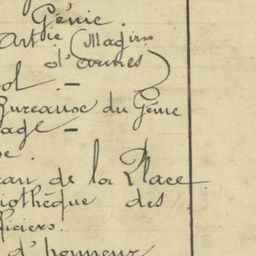 Génie.
Art ie (Magins
d'armes)
ol. —
Bureause du Génie
age —
e.
eau de la Place
liothèque des
ficiers.
d'honneur